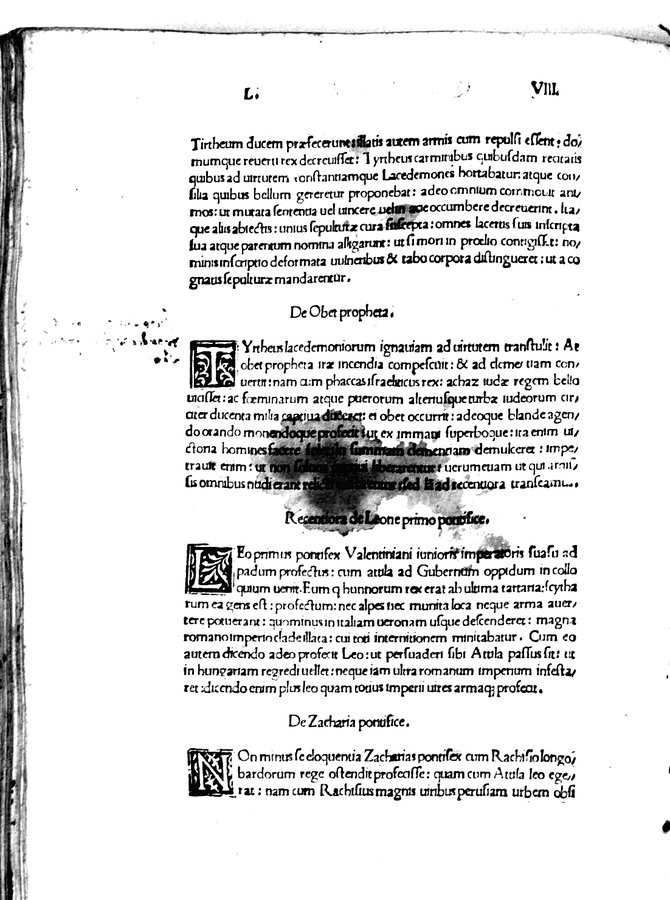 L. VIII.
Tirtheum ducem præfecerunt: illatis autem armis cum repulsi essent: do/
mumque reuerti rex decreuisset: Tyrtheus carminibus quibusdam recitatis
quibus ad uirtutem constantiamque Lacedemones hortabatur: atque con/
silia quibus bellum gereretur proponebat: adeo omnium commouit ani/
mos: ut mutata sententia uel uincere uelin aoe occumbere decreuerint. Ita/
que aliis abiectis: unius sepulturæ cura suscepta: omnes lacertis suis inscripta
sua atque parentum nomina alligarunt: ut si mori in prœlio contigisset: no/
minis inscriptio deformata uulneribus & tabo corpora distingueret: ut a co
gnatis sepulturæ mandarentur.
De Obet propheta.
TYrtheus lacedemoniorum ignauiam ad uirtutem transtulit: At
obet propheta iræ incendia compescuit: & ad clementiam con/
uertit: nam cum phaccas israeliticus rex: achaz iudæ regem bello
uicisset: ac fœminarum atque puerorum alteriusque turbæ iudeorum cir/
citer ducenta milia captiua duceret: ei obet occurrit: adeoque blande agen/
do orando monendoque profecit: ut ex immani superboque: ira enim ui/
ctoria homines facere solet in summam clementiam demulceret: impe/
trauit enim: ut non solum captiui liberarentur: uerumetiam ut qui amis/
sis omnibus nudi erant sed iam ad recentiora transeamus.
Recentiora de Leone primo pontifice.
LEo primus pontifex Valentiniani iunioris imperatoris suasu ad
padum profectus: cum attila ad Gubernum oppidum in collo
quium uenit. Eum q hunnorum rex erat ab ultima tartaria: scytha
rum ea gens est: profectum: nec alpes nec munita loca neque arma auer/
tere potuerant: quominus in italiam ueronam usque descenderet: magna
romano imperio clade illata: cui toti internitionem minitabatur. Cum eo
autem dicendo adeo profecit Leo: ut persuaderi sibi Attila passus sit: ut
in hungariam regredi uellet: neque iam ultra romanum imperium infesta/
ret: dicendo enim plus leo quam totius imperii uires armaq; profecit.
De Zacharia pontifice.
NOn minus se eloquentia Zacharias pontifex cum Rachisio longo/
bardorum rege ostendit profecisse: quam cum Attila leo ege/
rat: nam cum Rachisius magnis uiribus perusiam urbem obsi